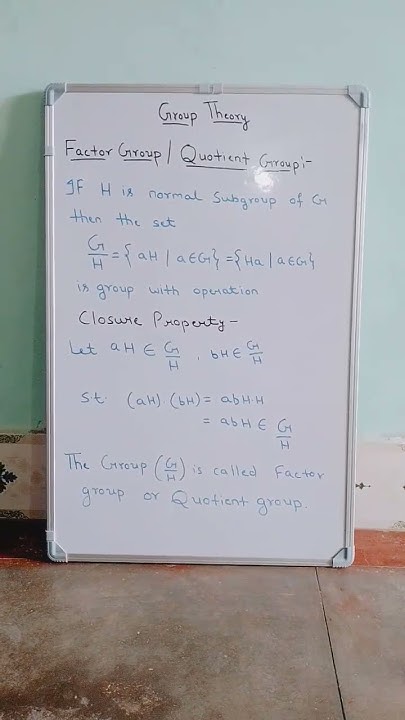 Group Theory
Factor Group / Quotient Group:-
If H is normal Subgroup of G
then the set
G/H = { aH / a∈G } = { Ha / a∈G }
is group with operation
Closure Property -
Let aH ∈ G/H , bH ∈ G/H
s.t. (aH) . (bH) = abH.H
= abH ∈ G/H
The Group (G/H) is called Factor
group or Quotient group.